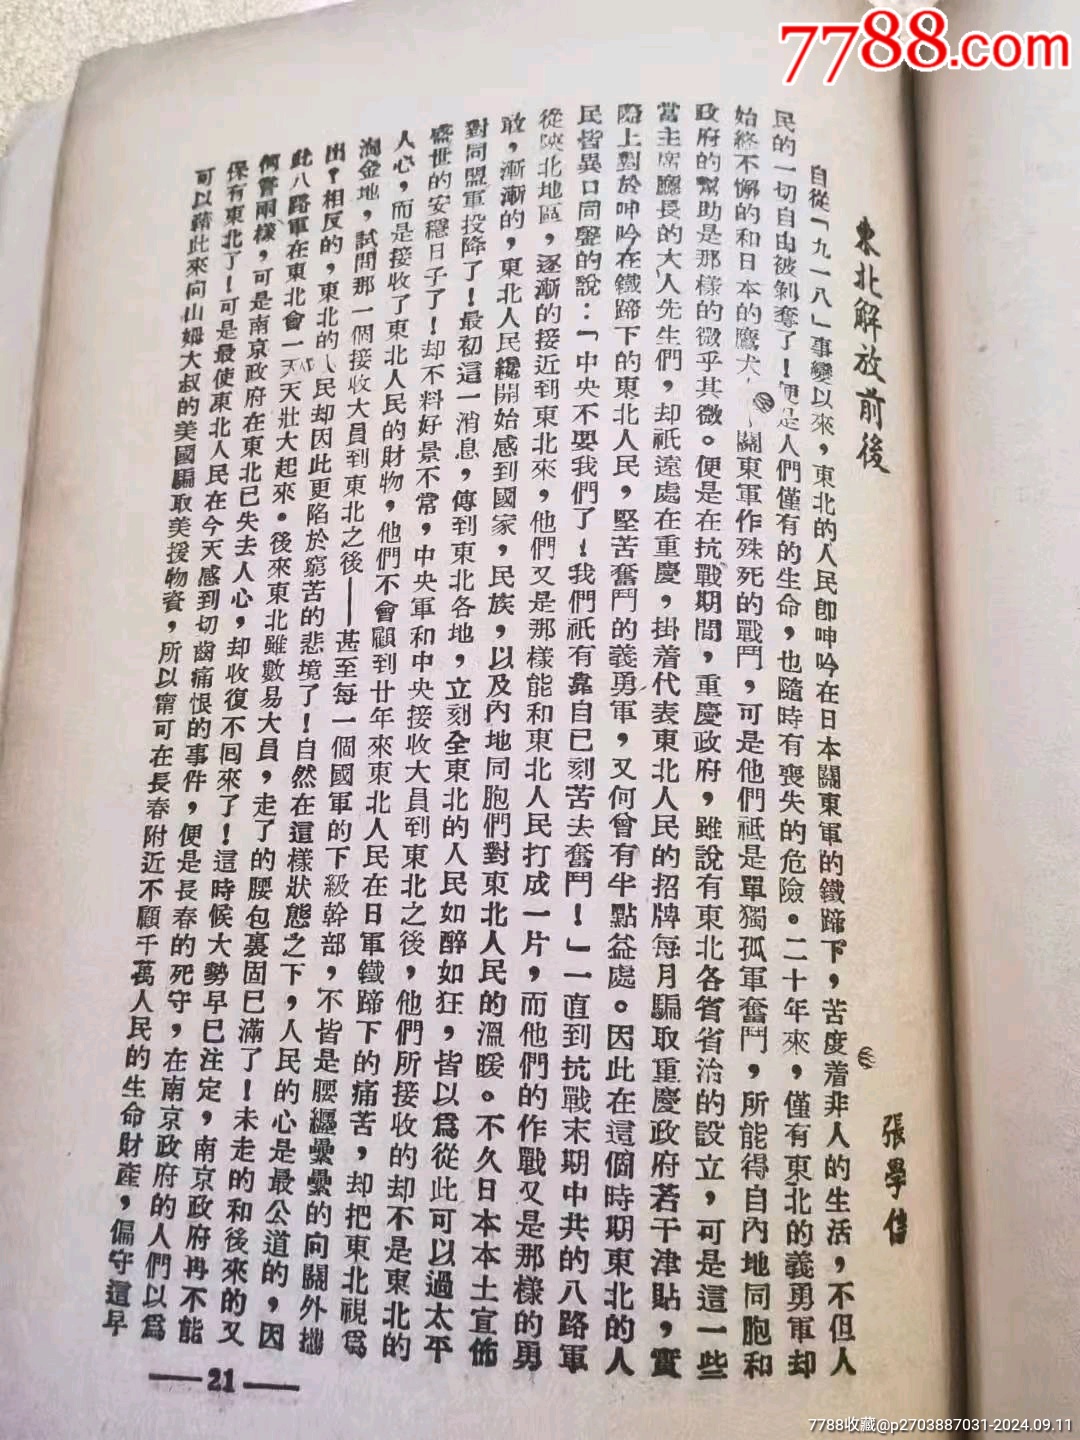 7788.com
東北解放前後
張學信
自從「九一八」事變以來，東北的人民卽呻吟在日本關東軍的鐵蹄下，苦度着非人的生活，不但人
民的一切自由被剝奪了！便是人們僅有的生命，也隨時有喪失的危險。二十年來，僅有東北的義勇軍却
始終不懈的和日本的鷹犬 關東軍作殊死的戰鬥，可是他們祗是單獨孤軍奮鬥，所能得自內地同胞和
政府的幫助是那樣的微乎其微。便是在抗戰期間，重慶政府，雖說有東北各省省治的設立，可是這一些
當主席廳長的大人先生們，却祇遠處在重慶，掛着代表東北人民的招牌每月騙取重慶政府若干津貼，實
際上對於呻吟在鐵蹄下的東北人民，堅苦奮鬥的義勇軍，又何曾有半點益處。因此在這個時期東北的人
民皆異口同聲的說：「中央不要我們了！我們祇有靠自己刻苦去奮鬥！」一直到抗戰末期中共的八路軍
從陝北地區，逐漸的接近到東北來，他們又是那樣能和東北人民打成一片，而他們的作戰又是那樣的勇
敢，漸漸的，東北人民纔開始感到國家，民族，以及內地同胞們對東北人民的溫暖。不久日本本土宣佈
對同盟軍投降了！最初這一消息，傳到東北各地，立刻全東北的人民如醉如狂，皆以爲從此可以過太平
盛世的安穩日子了！却不料好景不常，中央軍和中央接收大員到東北之後，他們所接收的却不是東北的
人心，而是接收了東北人民的財物，他們不會顧到廿年來東北人民在日軍鐵蹄下的痛苦，却把東北視爲
淘金地，試問那一個接收大員到東北之後——甚至每一個國軍的下級幹部，不皆是腰纒纍纍的向關外搬
出？相反的，東北的人民却因此更陷於窮苦的悲境了！自然在這樣狀態之下，人民的心是最公道的，因
此八路軍在東北會一天天壯大起來。後來東北雖數易大員，走了的腰包裏固已滿了！未走的和後來的又
何嘗兩樣，可是南京政府在東北已失去人心，却收復不囘來了！這時候大勢早已注定，南京政府再不能
保有東北了！可是最使東北人民在今天感到切齒痛恨的事件，便是長春的死守，在南京政府的人們以爲
可以藉此來向山姆大叔的美國騙取美援物資，所以甯可在長春附近不顧千萬人民的生命財產，偏守這早
—— 21 ——
7788收藏@p2703887031-2024.09.11